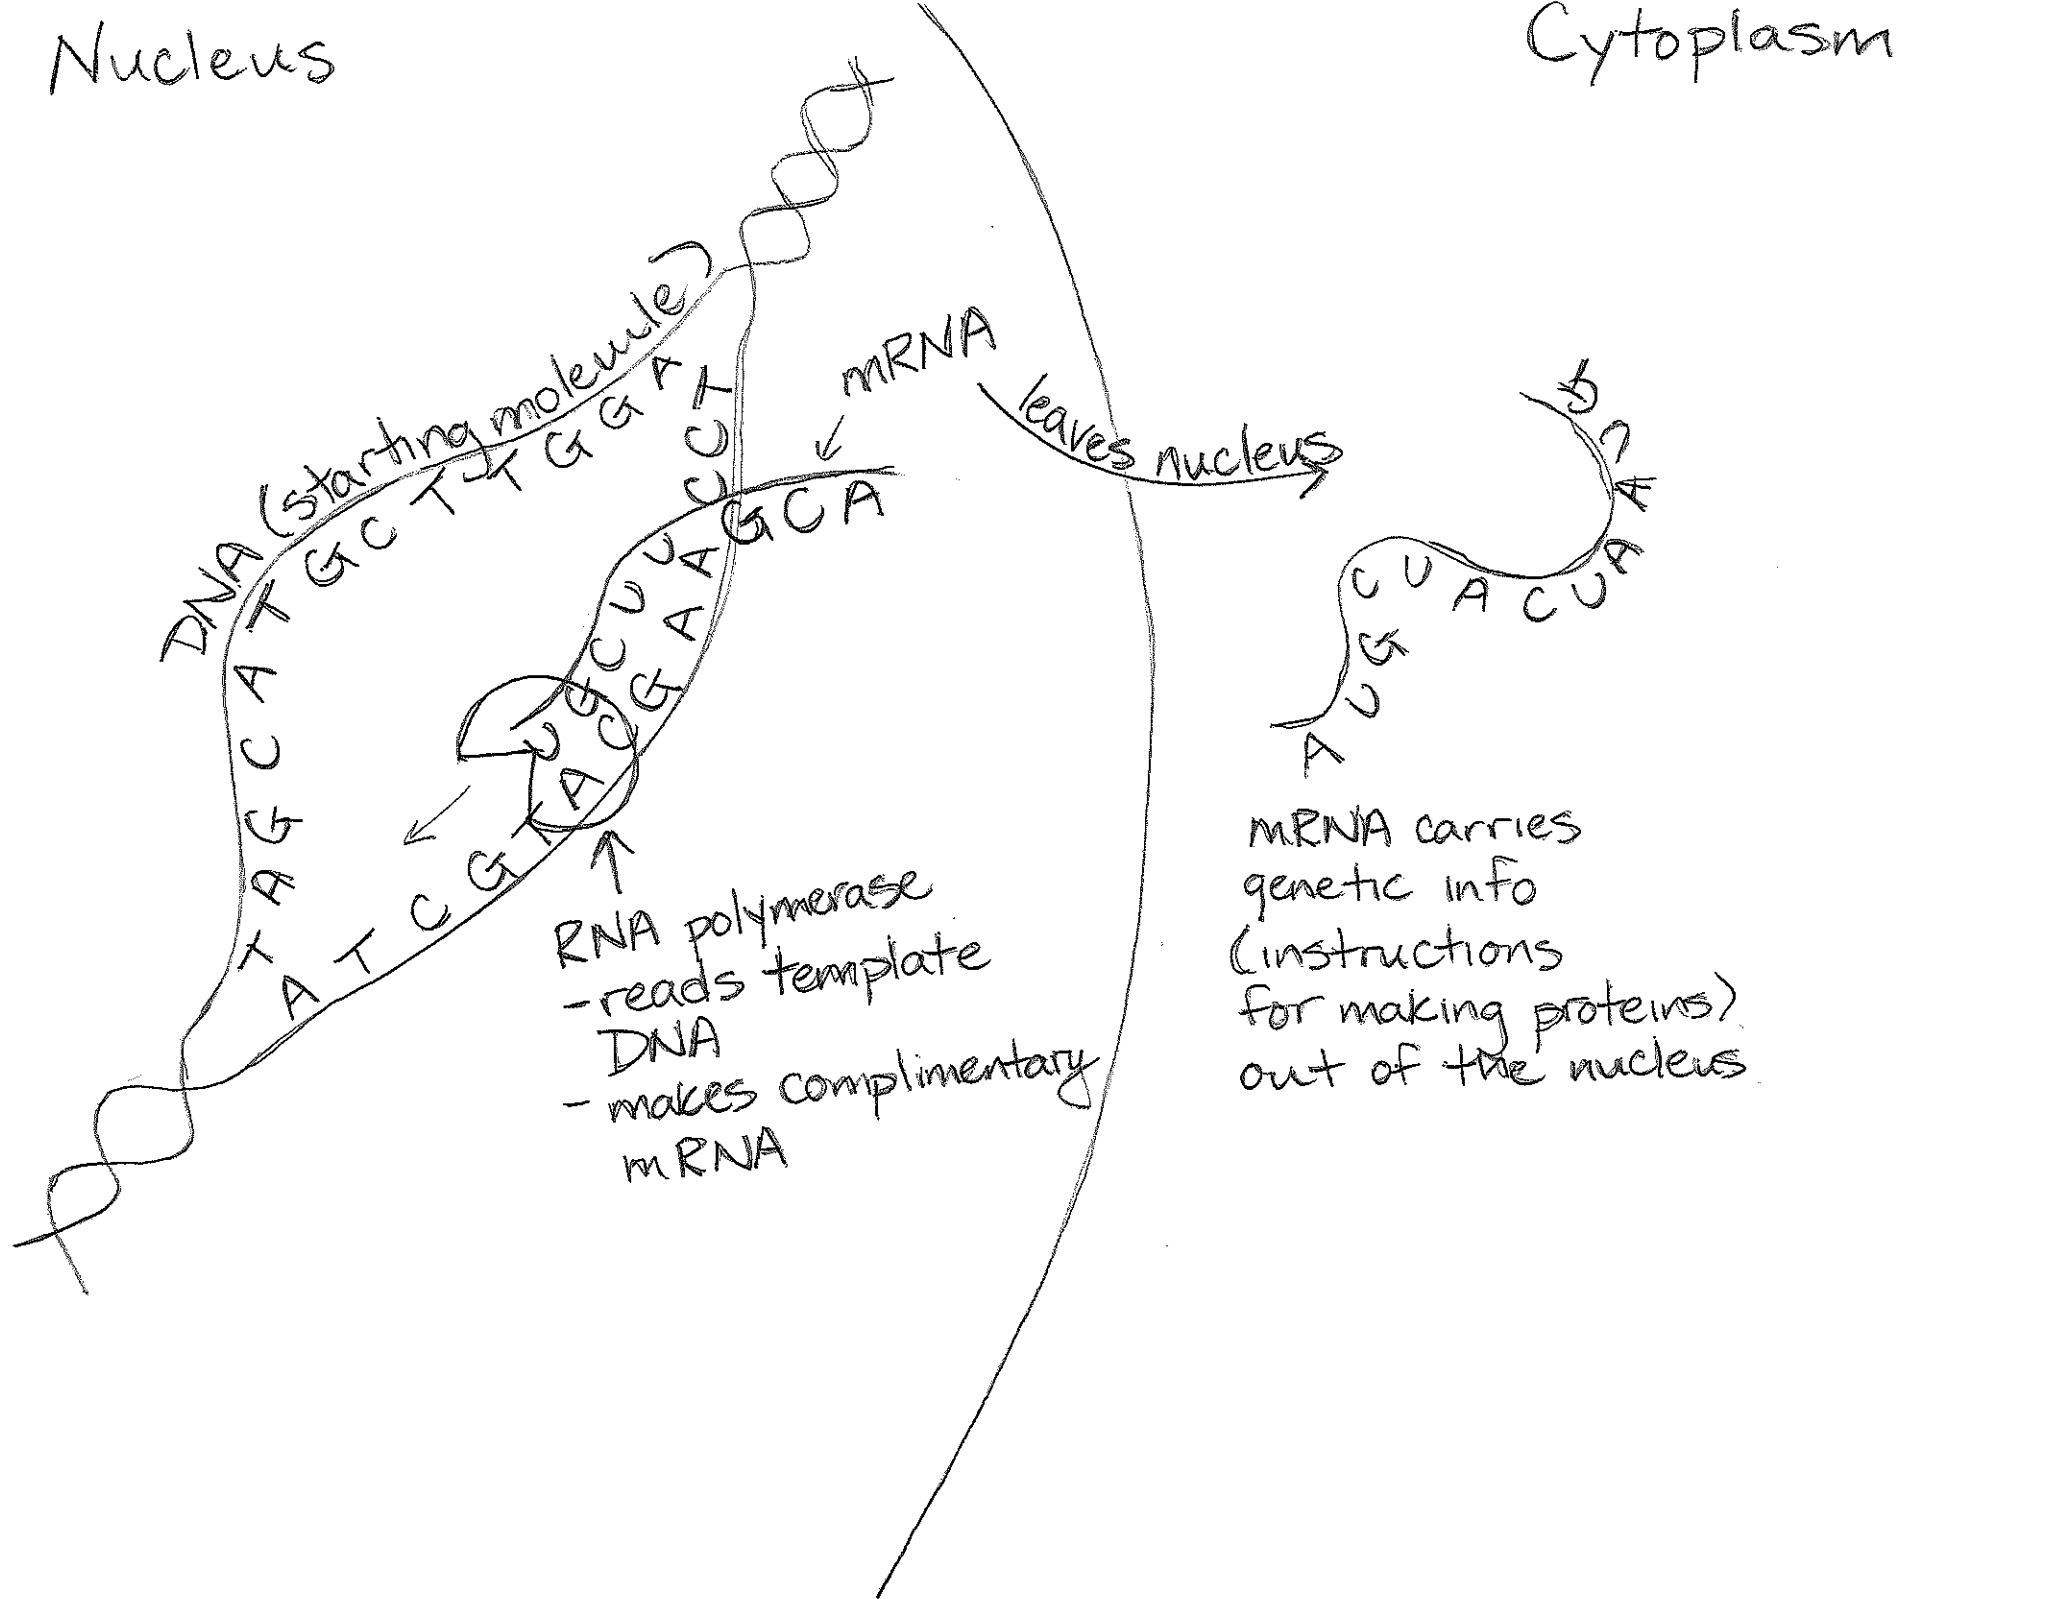 Nucleus
Cytoplasm
DNA (starting molecule)
T A G C A T G C T T G G A
A T C G T A C G A A C C T
mRNA
U G C U U G C A
leaves nucleus
A U G C U A C U A A
RNA polymerase
- reads template
DNA
- makes complimentary
mRNA
mRNA carries
genetic info
(instructions
for making proteins)
out of the nucleus